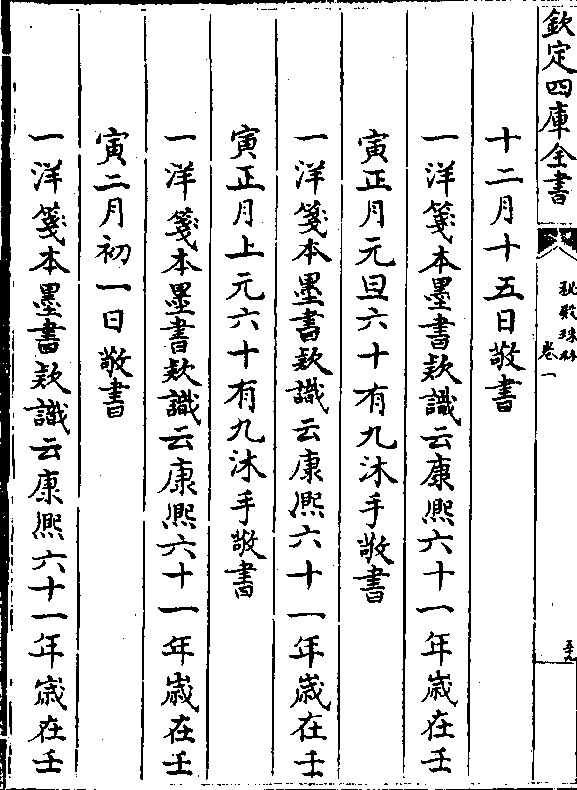 欽定四庫全書
秘殿珠林
卷一
五十九
十二月十五日敬書
一洋箋本墨書款識云康熙六十一年歲在壬
寅正月元旦六十有九沐手敬書
一洋箋本墨書款識云康熙六十一年歲在壬
寅正月上元六十有九沐手敬書
一洋箋本墨書款識云康熙六十一年歲在壬
寅二月初一日敬書
一洋箋本墨書款識云康熙六十一年歲在壬